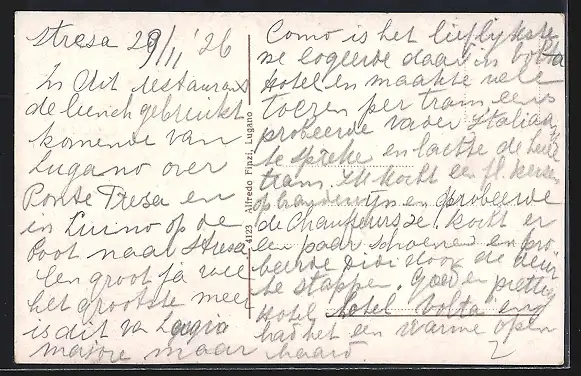 Stresa 29/11 '26
In dit restaurant
de lunch gebruikt
komende van
Lugano over
Ponte Tresa en
in Luino op de
boot naar Stresa
Een groot
het grootste meer
is dit van Lago
majore maar
4123 Alfredo Finzi, Lugano
Como is het lieflijkste
we logeerde daar in Volta
Hotel en maakte vele
toeren per tram, eens
probeerde vader Italiaa
te spreke en lachte de heele
tram. Ik kocht een fl. kersen
op brandewijn en probeerde
de Chauffeurs ze. Kocht er
een paar schoenen en pro
beerde die door de deur
te stappen. Goed en prettig
Hotel Hotel Volta en
had het een warme open
haard